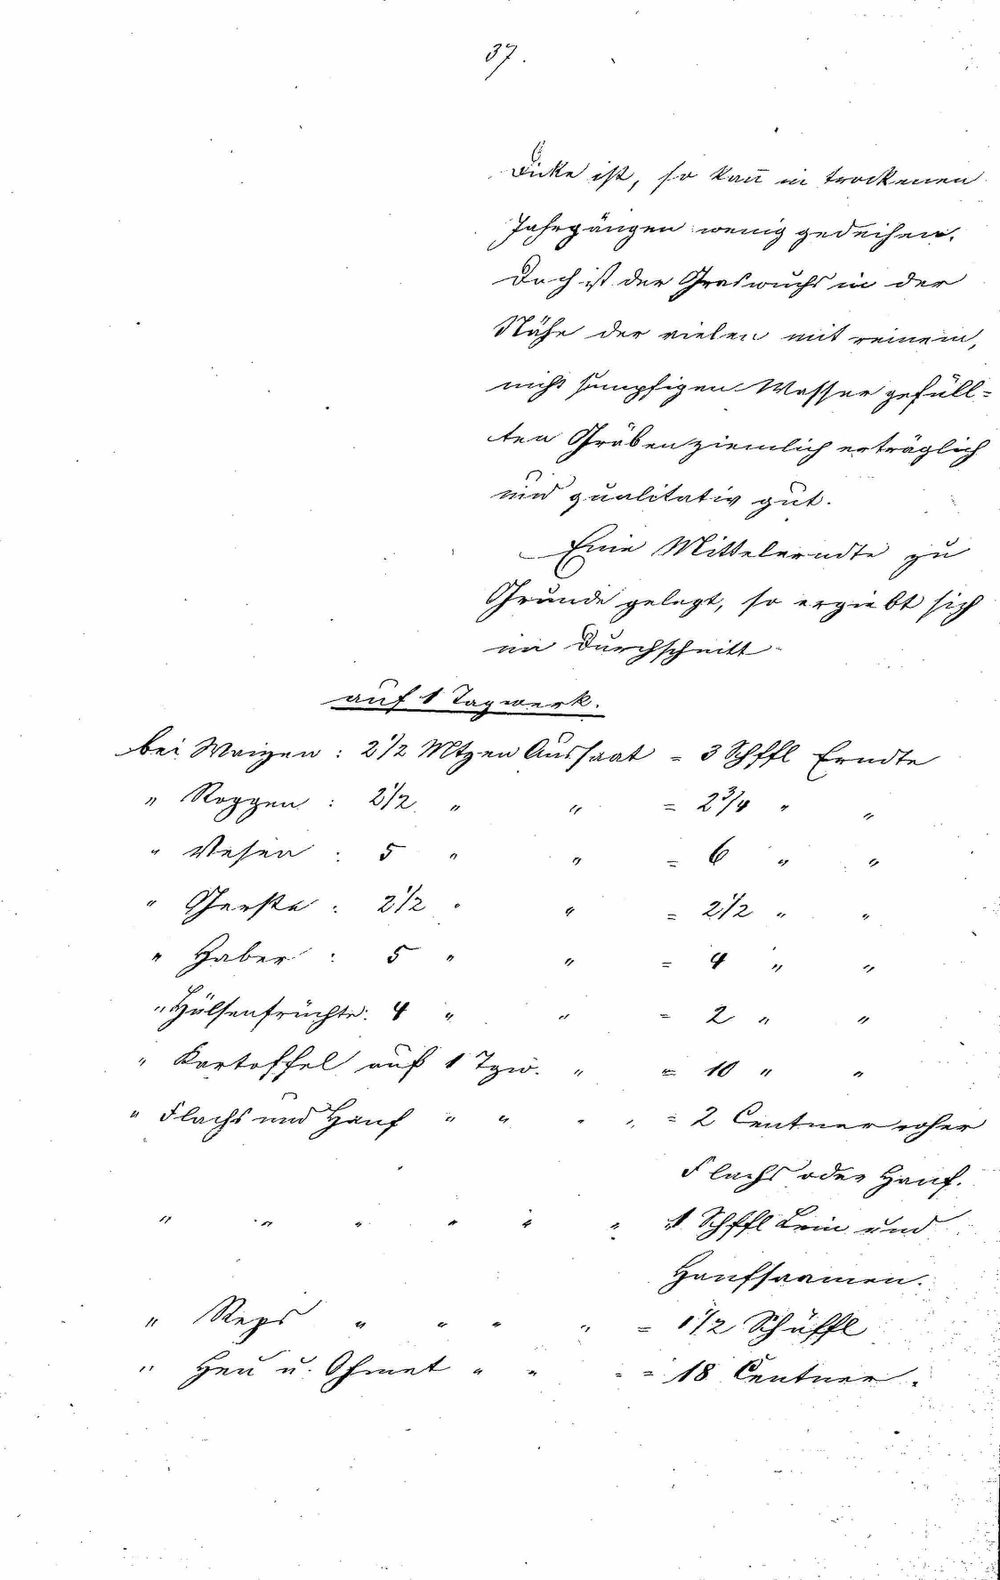 37.
Dicke ist, so kann̄ in trockenen
Jahrgängen wenig gedeihen.
Doch ist der Graswuchs in der
Nähe der vielen mit reinem,
nicht sumpfigen Wasser gefüll=
ten Gräben ziemlich erträglich
und qualitativ gut.
Eine Mittelerndte zu
Grunde gelegt, so ergiebt sich
im Durchschnitt
auf 1 Tagwerk.
bei Waizen : 2 1/2 Mtzen Aussaat = 3 Schffl Erndte
" Roggen : 2 1/2 " " = 2 3/4 " "
" Vesen : 5 " " = 6 " "
" Gerste : 2 1/2 " " = 2 1/2 " "
" Haber : 5 " " = 4 " "
" Hülsenfrüchte : 4 " " = 2 " "
" Kartoffel auf 1 Tgw. " = 10 " "
" Flachs und Hanf " " " " = 2 Centner roher
Flachs oder Hanf.
" " " " " " 1 Schffl Lein und
Hanfsaamen.
" Reps " " " " = 1 1/2 Schäffl
" Heu u. Ohmet " " " = 18 Centner.